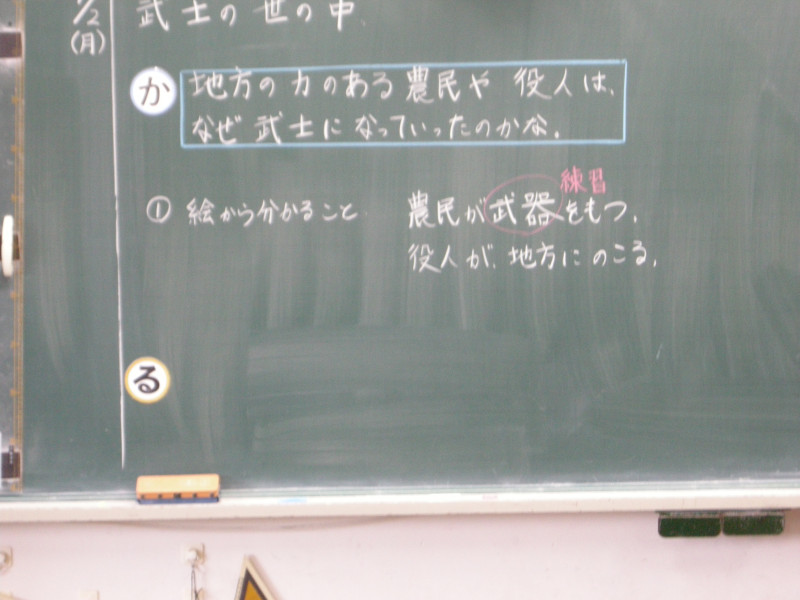 武士の世の中
/2
(月)
か
地方の力のある農民や役人は、
なぜ武士になっていったのかな。
① 絵から分かること
練習
農民が武器をもつ。
役人が、地方にのこる。
る